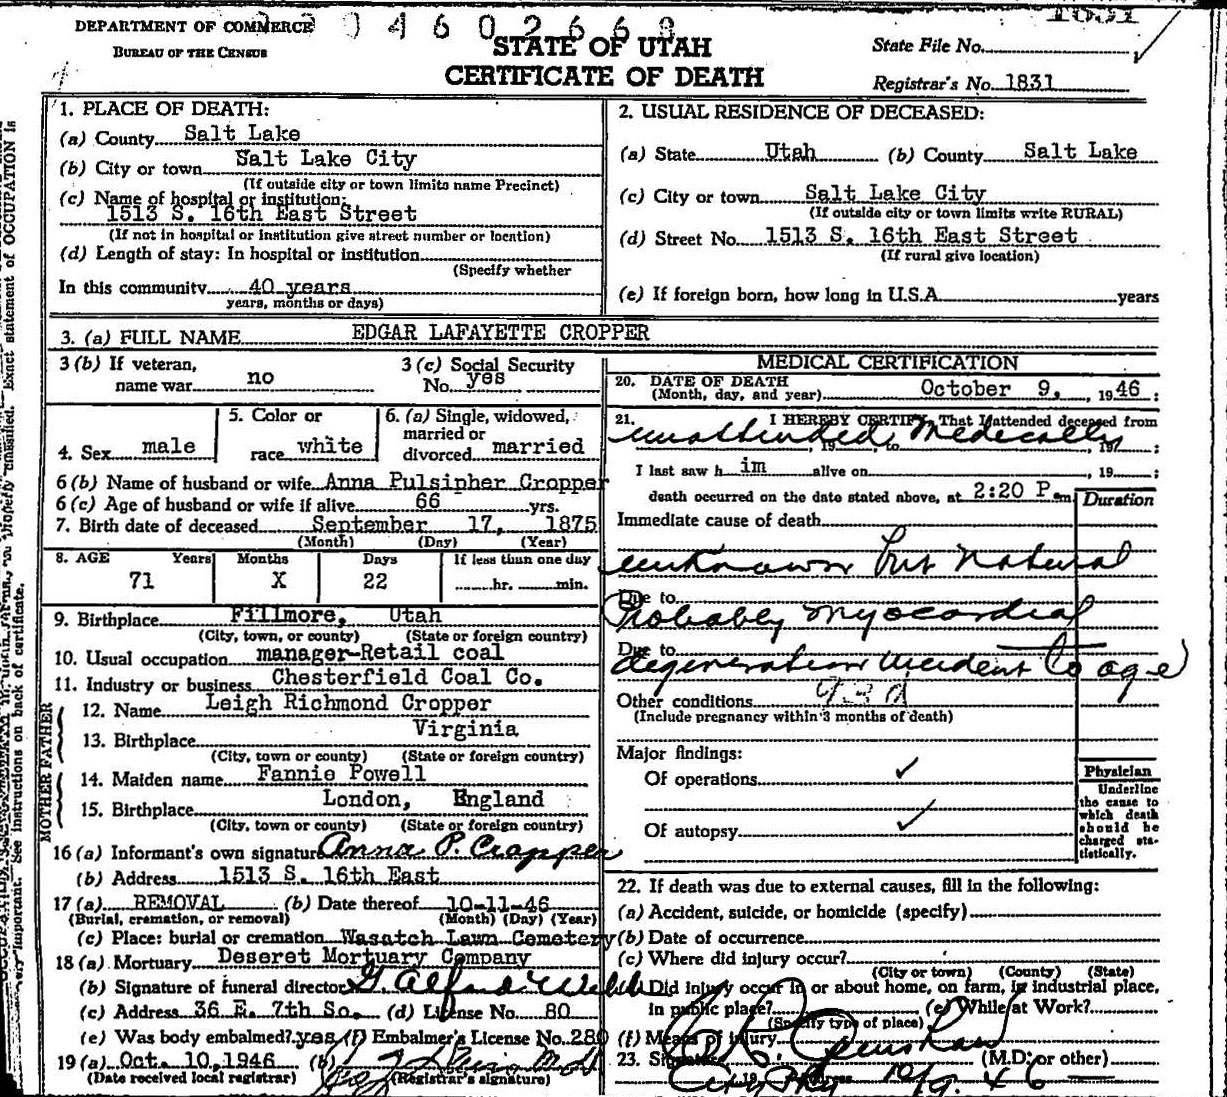 DEPARTMENT OF COMMERCE
BUREAU OF THE CENSUS
0 4 6 0 2 6 6 8
STATE OF UTAH
CERTIFICATE OF DEATH
State File No.
Registrar's No. 1831
1. PLACE OF DEATH:
(a) County Salt Lake
(b) City or town Salt Lake City
(If outside city or town limits name Precinct)
(c) Name of hospital or institution:
1513 S. 16th East Street
(If not in hospital or institution give street number or location)
(d) Length of stay: In hospital or institution
(Specify whether
In this community 40 years
years, months or days)
2. USUAL RESIDENCE OF DECEASED:
(a) State Utah (b) County Salt Lake
(c) City or town Salt Lake City
(If outside city or town limits write RURAL)
(d) Street No. 1513 S. 16th East Street
(If rural give location)
(e) If foreign born, how long in U.S.A. years
3. (a) FULL NAME EDGAR LAFAYETTE CROPPER
3 (b) If veteran, name war no
3 (c) Social Security No. yes
4. Sex male
5. Color or race white
6. (a) Single, widowed, married or divorced married
6 (b) Name of husband or wife Anna Pulsipher Cropper
6 (c) Age of husband or wife if alive 66 yrs.
7. Birth date of deceased September 17, 1875
(Month) (Day) (Year)
8. AGE Years Months Days If less than one day
71 X 22 hr. min.
9. Birthplace Fillmore, Utah
(City, town, or county) (State or foreign country)
10. Usual occupation manager-Retail coal
11. Industry or business Chesterfield Coal Co.
FATHER
12. Name Leigh Richmond Cropper
13. Birthplace Virginia
(City, town or county) (State or foreign country)
MOTHER
14. Maiden name Fannie Powell
15. Birthplace London, England
(City, town or county) (State or foreign country)
16 (a) Informant's own signature Anna P. Cropper
(b) Address 1513 S. 16th East
17 (a) REMOVAL (b) Date thereof 10-11-46
(Burial, cremation, or removal) (Month) (Day) (Year)
(c) Place: burial or cremation Wasatch Lawn Cemetery
18 (a) Mortuary Deseret Mortuary Company
(b) Signature of funeral director
(c) Address 36 E. 7th So. (d) License No. 80
(e) Was body embalmed? yes (f) Embalmer's License No. 280
19 (a) Oct. 10, 1946 (b)
(Date received local registrar) (Registrar's signature)
MEDICAL CERTIFICATION
20. DATE OF DEATH
(Month, day, and year) October 9, 1946:
21. I HEREBY CERTIFY, That I attended deceased from
unattended Medically
, 19 , to , 19 ;
I last saw h im alive on , 19 ;
death occurred on the date stated above, at 2:20 P. m.
Duration
Immediate cause of death
unknown but Natural
Due to
Probably Myocardial
Due to
degeneration incident to age
Other conditions 93d
(Include pregnancy within 3 months of death)
Major findings:
Of operations ✓
Of autopsy ✓
Physician
Underline
the cause to
which death
should be
charged sta-
tistically.
22. If death was due to external causes, fill in the following:
(a) Accident, suicide, or homicide (specify)
(b) Date of occurrence
(c) Where did injury occur?
(City or town) (County) (State)
Did injury occur in or about home, on farm, in industrial place,
in public place? (e) While at Work?
(Specify type of place)
(f) Means of injury
23. Signature (M.D. or other)
10/9. 46
Exact statement of OCCUPATION is
See instructions on back of certificate.